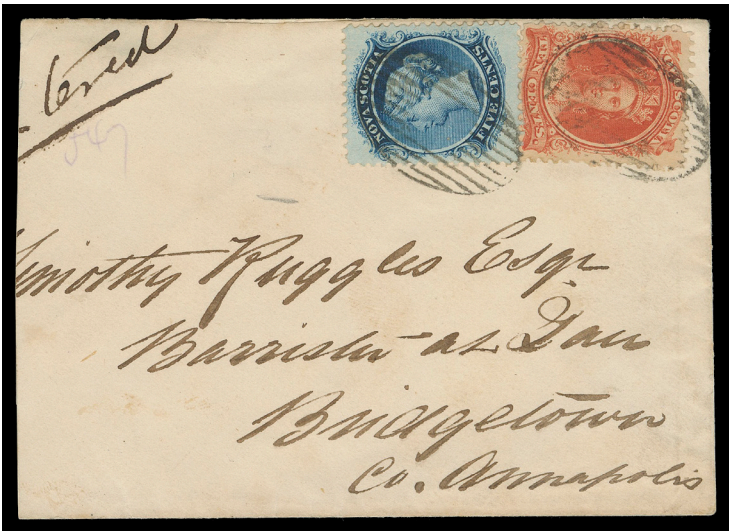 tered
547
NOVA SCOTIA
FIVE CENTS
NOVA SCOTIA
TEN CENTS
Timothy Ruggles Esqr
Barrister at Law
Bridgetown
Co. Annapolis